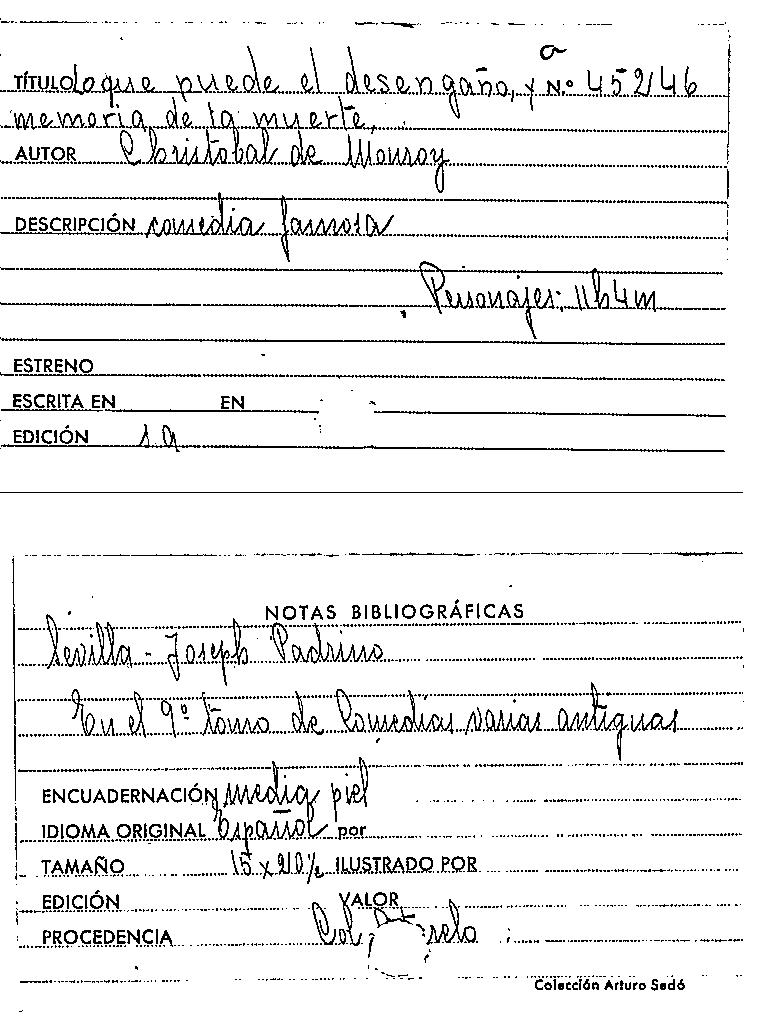 a
TÍTULO Lo que puede el desengaño, y N.º 45246
memoria de la muerte,
AUTOR Christobal de Monroy
DESCRIPCIÓN comedia famosa
Personajes: 11h4m
ESTRENO
ESCRITA EN EN
EDICIÓN s a
NOTAS BIBLIOGRÁFICAS
Sevilla - Joseph Padrino
En el 9º tomo de Comedias varias antiguas
ENCUADERNACIÓN media piel
IDIOMA ORIGINAL Español por
TAMAÑO 15 x ILUSTRADO POR
EDICIÓN VALOR
PROCEDENCIA Col
Colección Arturo Sedó